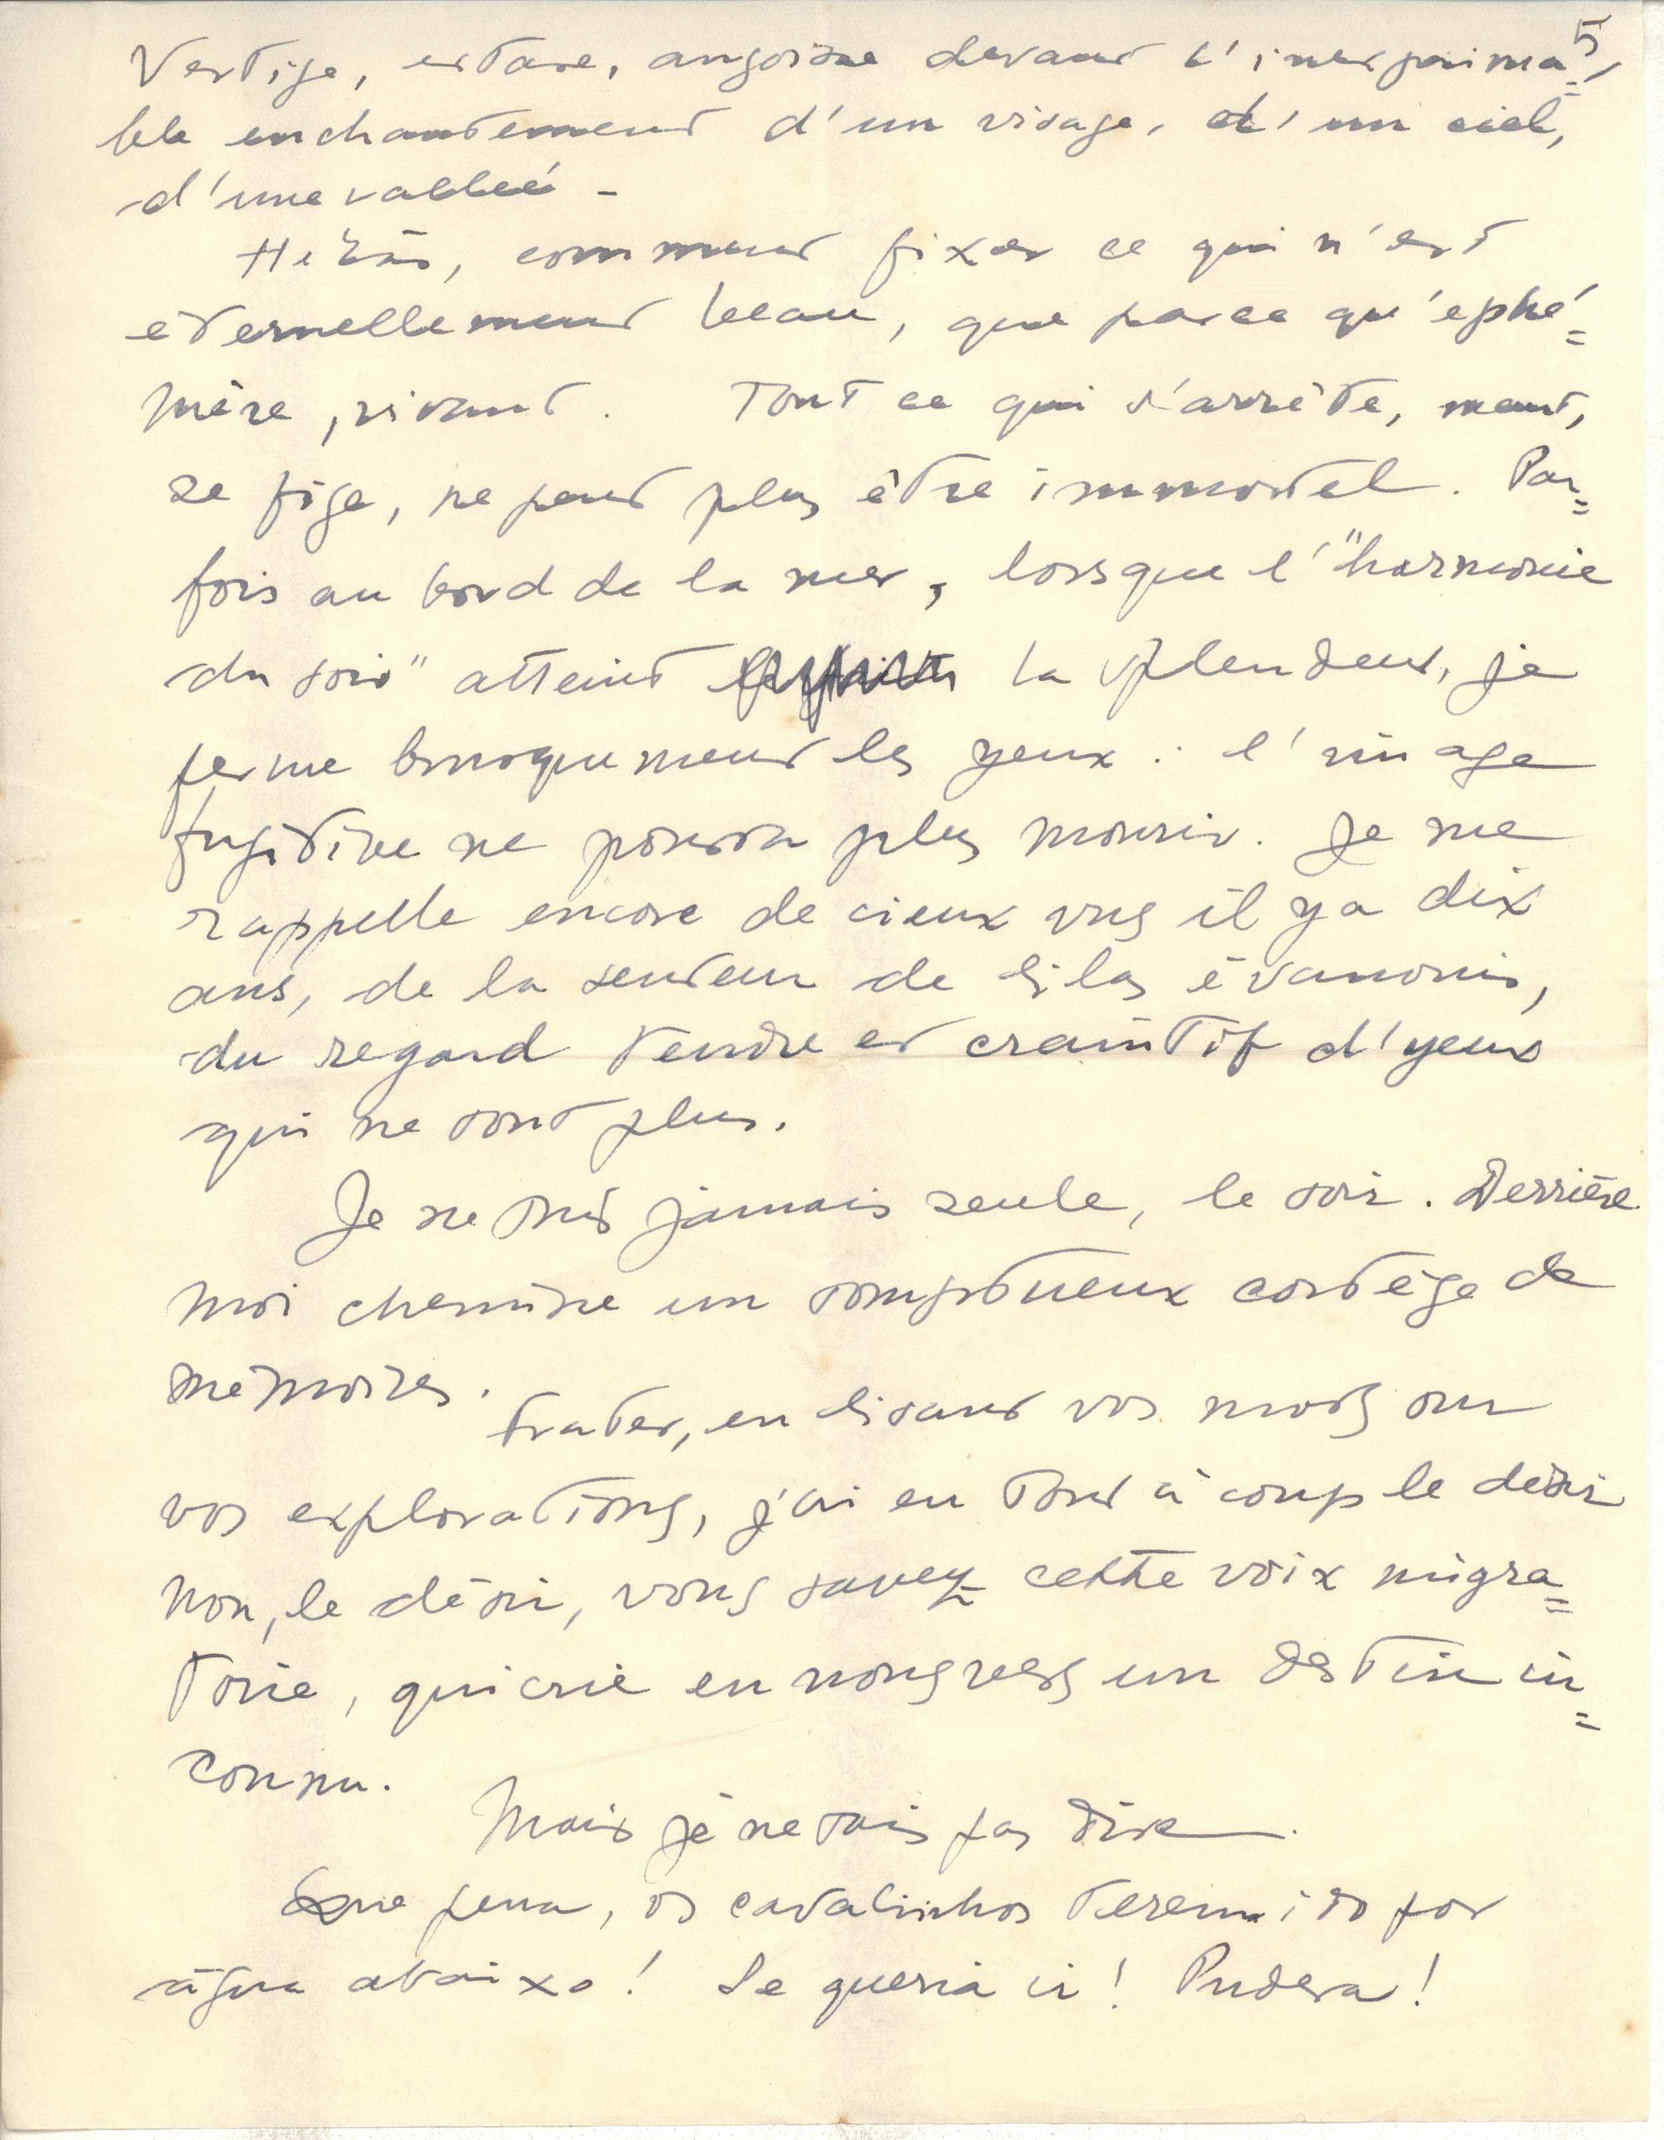 5/
Vertige, extase, angoisse devant l'inexprima=
ble enchantement d'un visage, d'un ciel,
d'une vallée -
Hélas, comment fixer ce qui n'est
eternellement beau, que parce qu'ephé=
mère, vivant. Tout ce qui s'arrête, meurt,
se fige, ne peut plus être immortel. Par=
fois au bord de la mer, lorsque l'"harmonie
du soir" atteint la splendeur, je
ferme brusquement les yeux : l'image
fugitive ne pourra plus mourir. Je me
rappelle encore de cieux vus il y a dix
ans, de la senteur de lilas évanouis,
du regard tendre et craintif d'yeux
qui ne sont plus.
Je ne suis jamais seule, le soir. Derrière
moi chemine un somptueux cortège de
mémoires.
Frater, en lisant vos mots sur
vos explorations, j'ai eu tout à coup le désir
non, le désir, vous savez cette voix migra=
toire, qui crie en nous vers un destin in=
connu.
Mais je ne sais pas dire.
Que pena, os cavalinhos terem ido por
água abaixo! Se queria ir! Pudera!